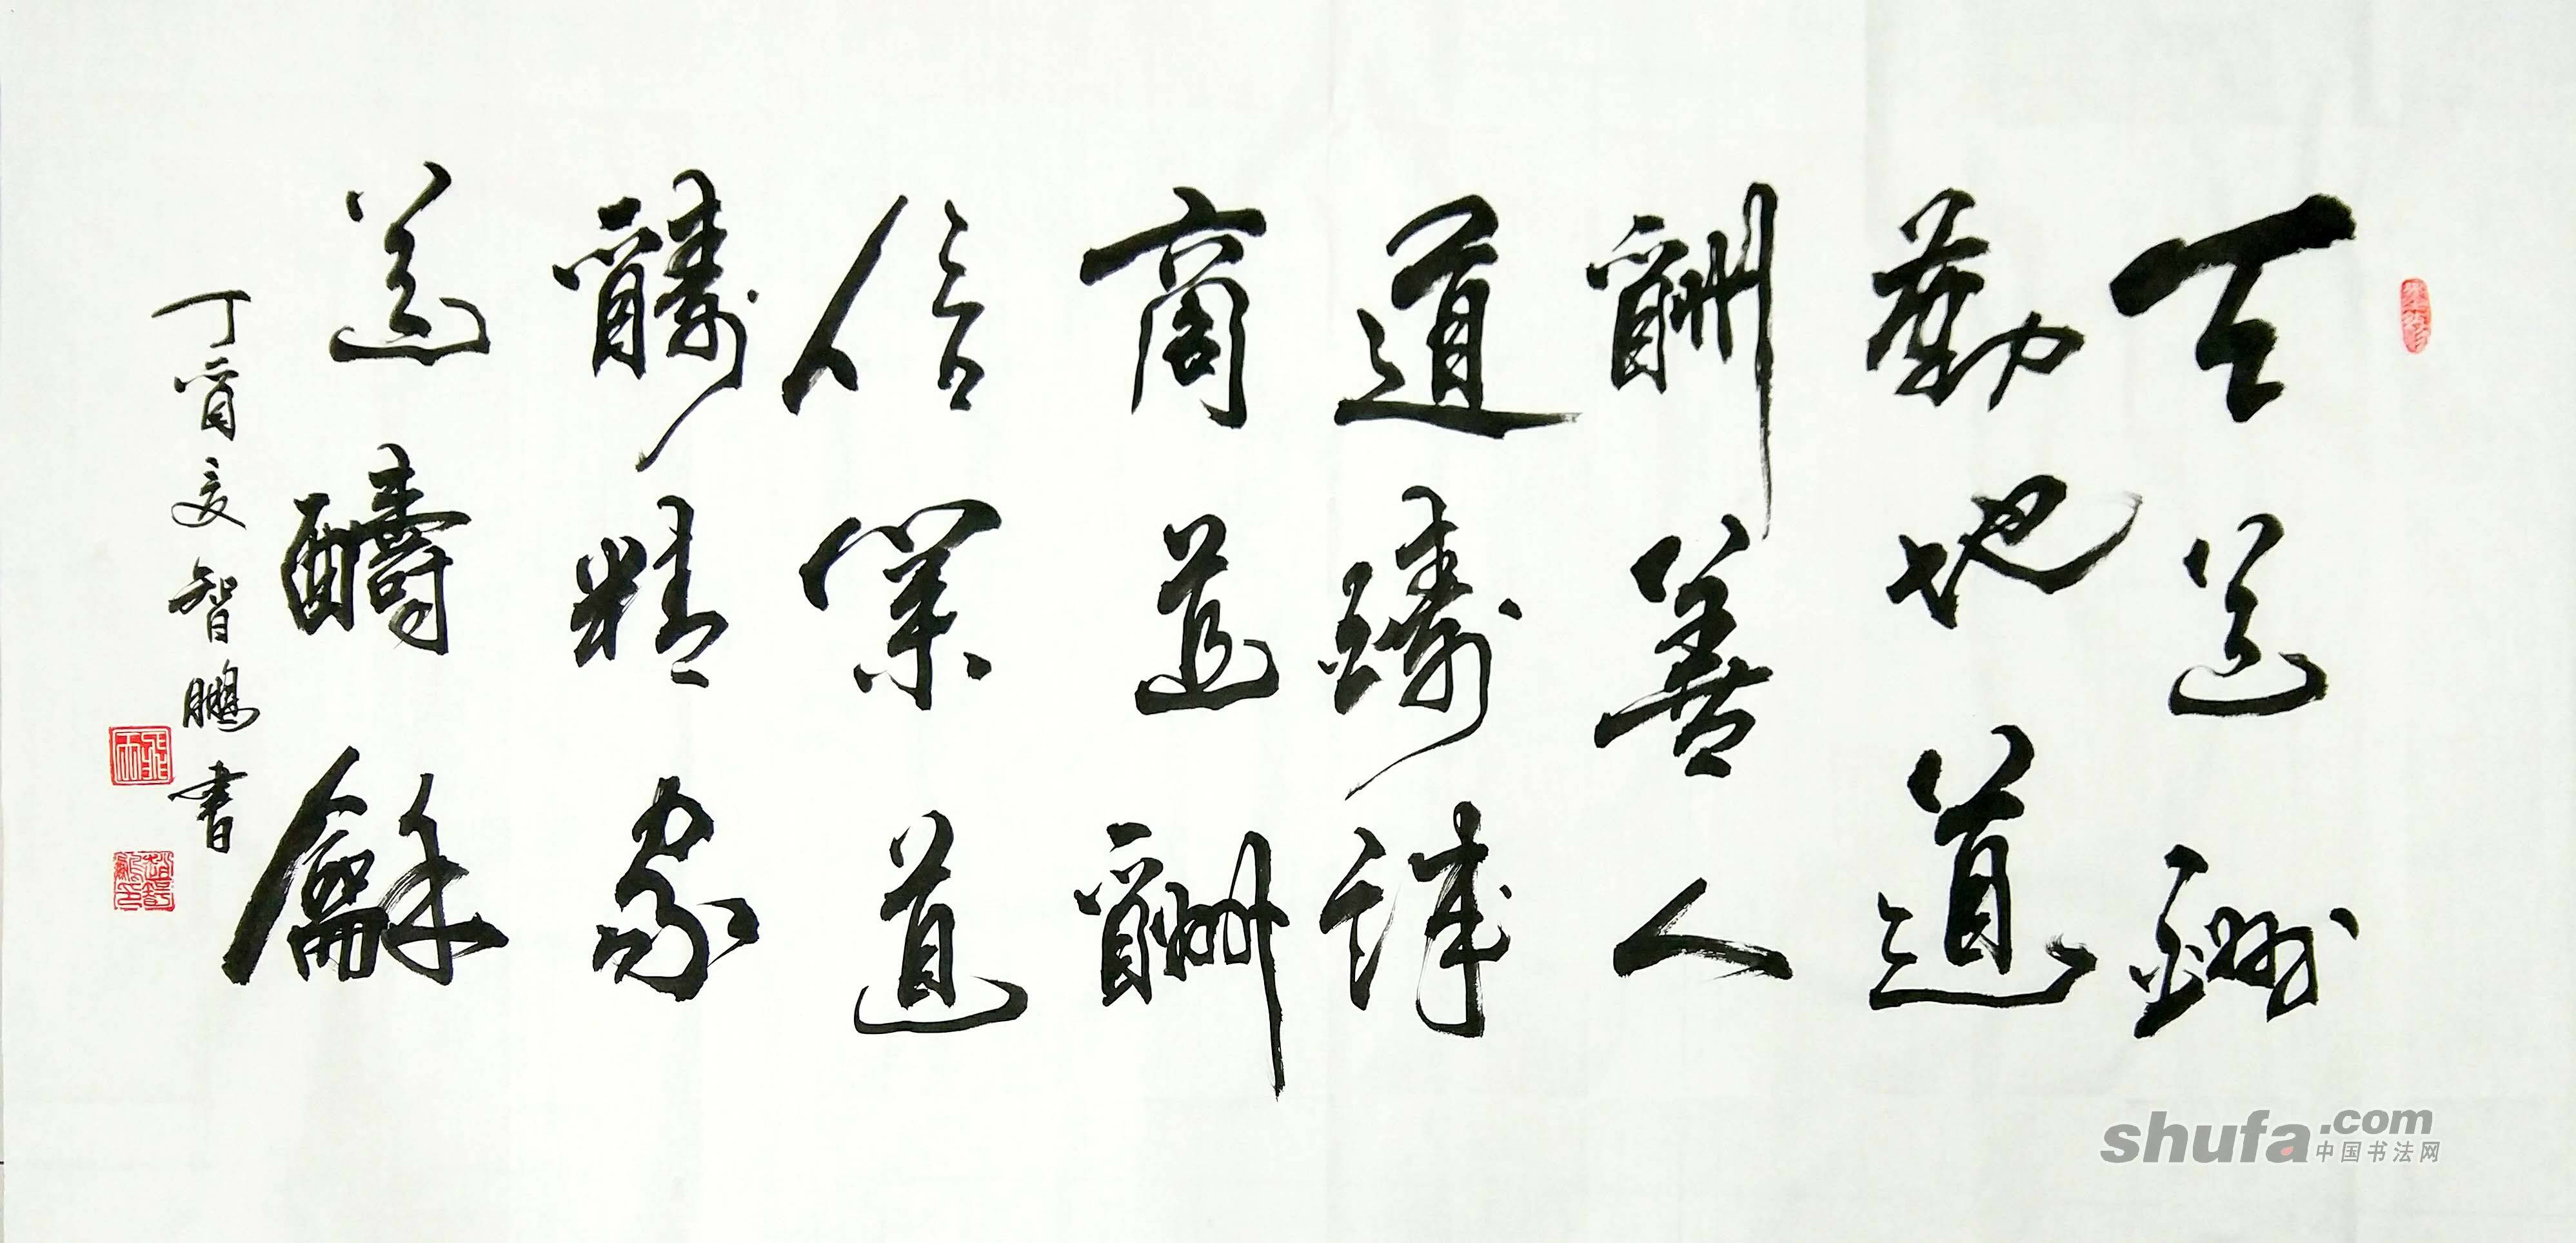 天道酬
勤地道
酬善人
道醻誠
商道酬
信業道
醻精家
道醻龢
丁酉夏智鵬書
shufa.com
中国书法网